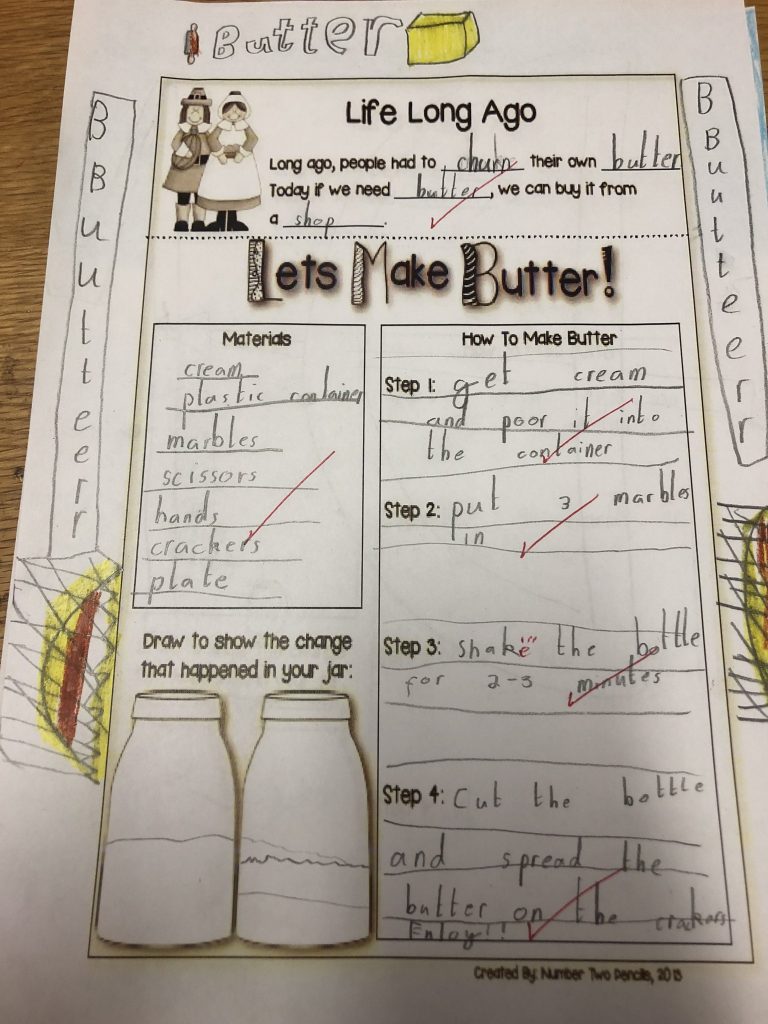 Butter
B B u u t t e e r r
B B u u t t e e r r
Life Long Ago
Long ago, people had to churn their own butter
Today if we need butter, we can buy it from
a shop.
Lets Make Butter!
Materials
cream
plastic container
marbles
scissors
hands
crackers
plate
Draw to show the change
that happened in your jar:
How To Make Butter
Step 1: get cream
and poor it into
the container
Step 2: put 3 marbles
in
Step 3: shake the bottle
for 2-3 minutes
Step 4: Cut the bottle
and spread the
butter on the crakers
Enjoy!!
Created By: Number Two Pencils, 2013